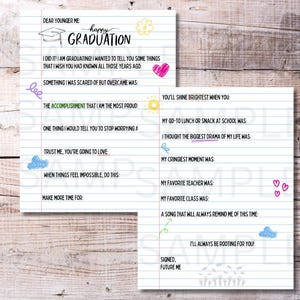 DEAR YOUNGER ME:
happy
GRADUATION
I DID IT! I AM GRADUATING! I WANTED TO TELL YOU SOME THINGS
THAT I WISH YOU HAD KNOWN ALL THOSE YEARS AGO:
SOMETHING I WAS SCARED OF BUT OVERCAME WAS:
THE ACCOMPLISHMENT THAT I AM THE MOST PROUD
ONE THING I WOULD TELL YOU TO STOP WORRYING A
TRUST ME, YOU'RE GOING TO LOVE:
WHEN THINGS FEEL IMPOSSIBLE, DO THIS:
MAKE MORE TIME FOR:
YOU'LL SHINE BRIGHTEST WHEN YOU:
MY GO-TO LUNCH OR SNACK AT SCHOOL WAS:
I THOUGHT THE BIGGEST DRAMA OF MY LIFE WAS:
MY CRINGIEST MOMENT WAS:
MY FAVORITE TEACHER WAS:
MY FAVORITE CLASS WAS:
A SONG THAT WILL ALWAYS REMIND ME OF THIS TIME:
I'LL ALWAYS BE ROOTING FOR YOU!
SIGNED,
FUTURE ME